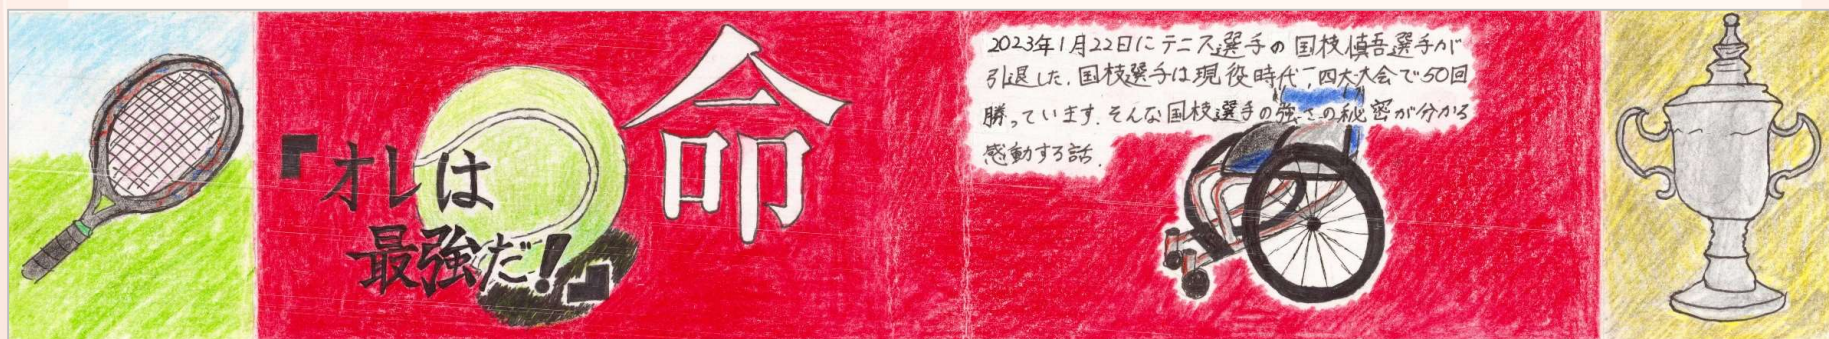 『オレは
最強だ！』
命
2023年1月22日にテニス選手の国枝慎吾選手が
引退した。国枝選手は現役時代、四大大会で50回
勝っています。そんな国枝選手の強さの秘密が分かる
感動する話。